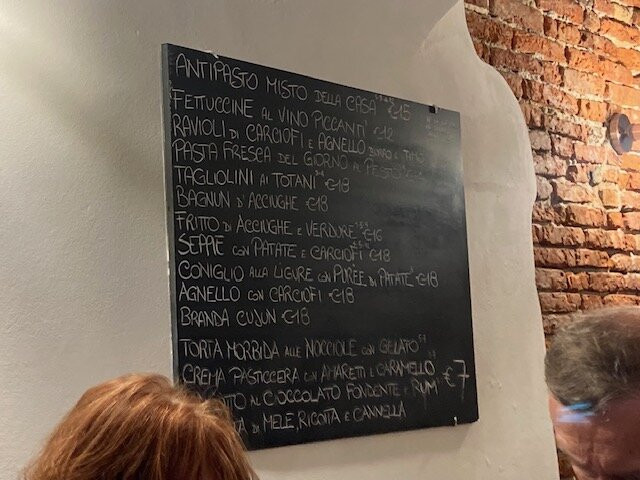 ANTIPASTO MISTO DELLA CASA €15
FETTUCCINE AL VINO PICCANTI €12
RAVIOLI DI CARCIOFI E AGNELLO BURRO E TIMO
PASTA FRESCA DEL GIORNO AL PESTO
TAGLIOLINI AI TOTANI €18
BAGNUN D'ACCIUGHE €18
FRITTO DI ACCIUGHE E VERDURE €16
SEPPIE CON PATATE E CARCIOFI €18
CONIGLIO ALLA LIGURE CON PURÈE DI PATATE €18
AGNELLO CON CARCIOFI €18
BRANDA CUJUN €18
TORTA MORBIDA ALLE NOCCIOLE CON GELATO
CREMA PASTICCERA CON AMARETTI E CARAMELLO
AL CIOCCOLATO FONDENTE E RUM €7
DI MELE, RICOTTA E CANNELLA